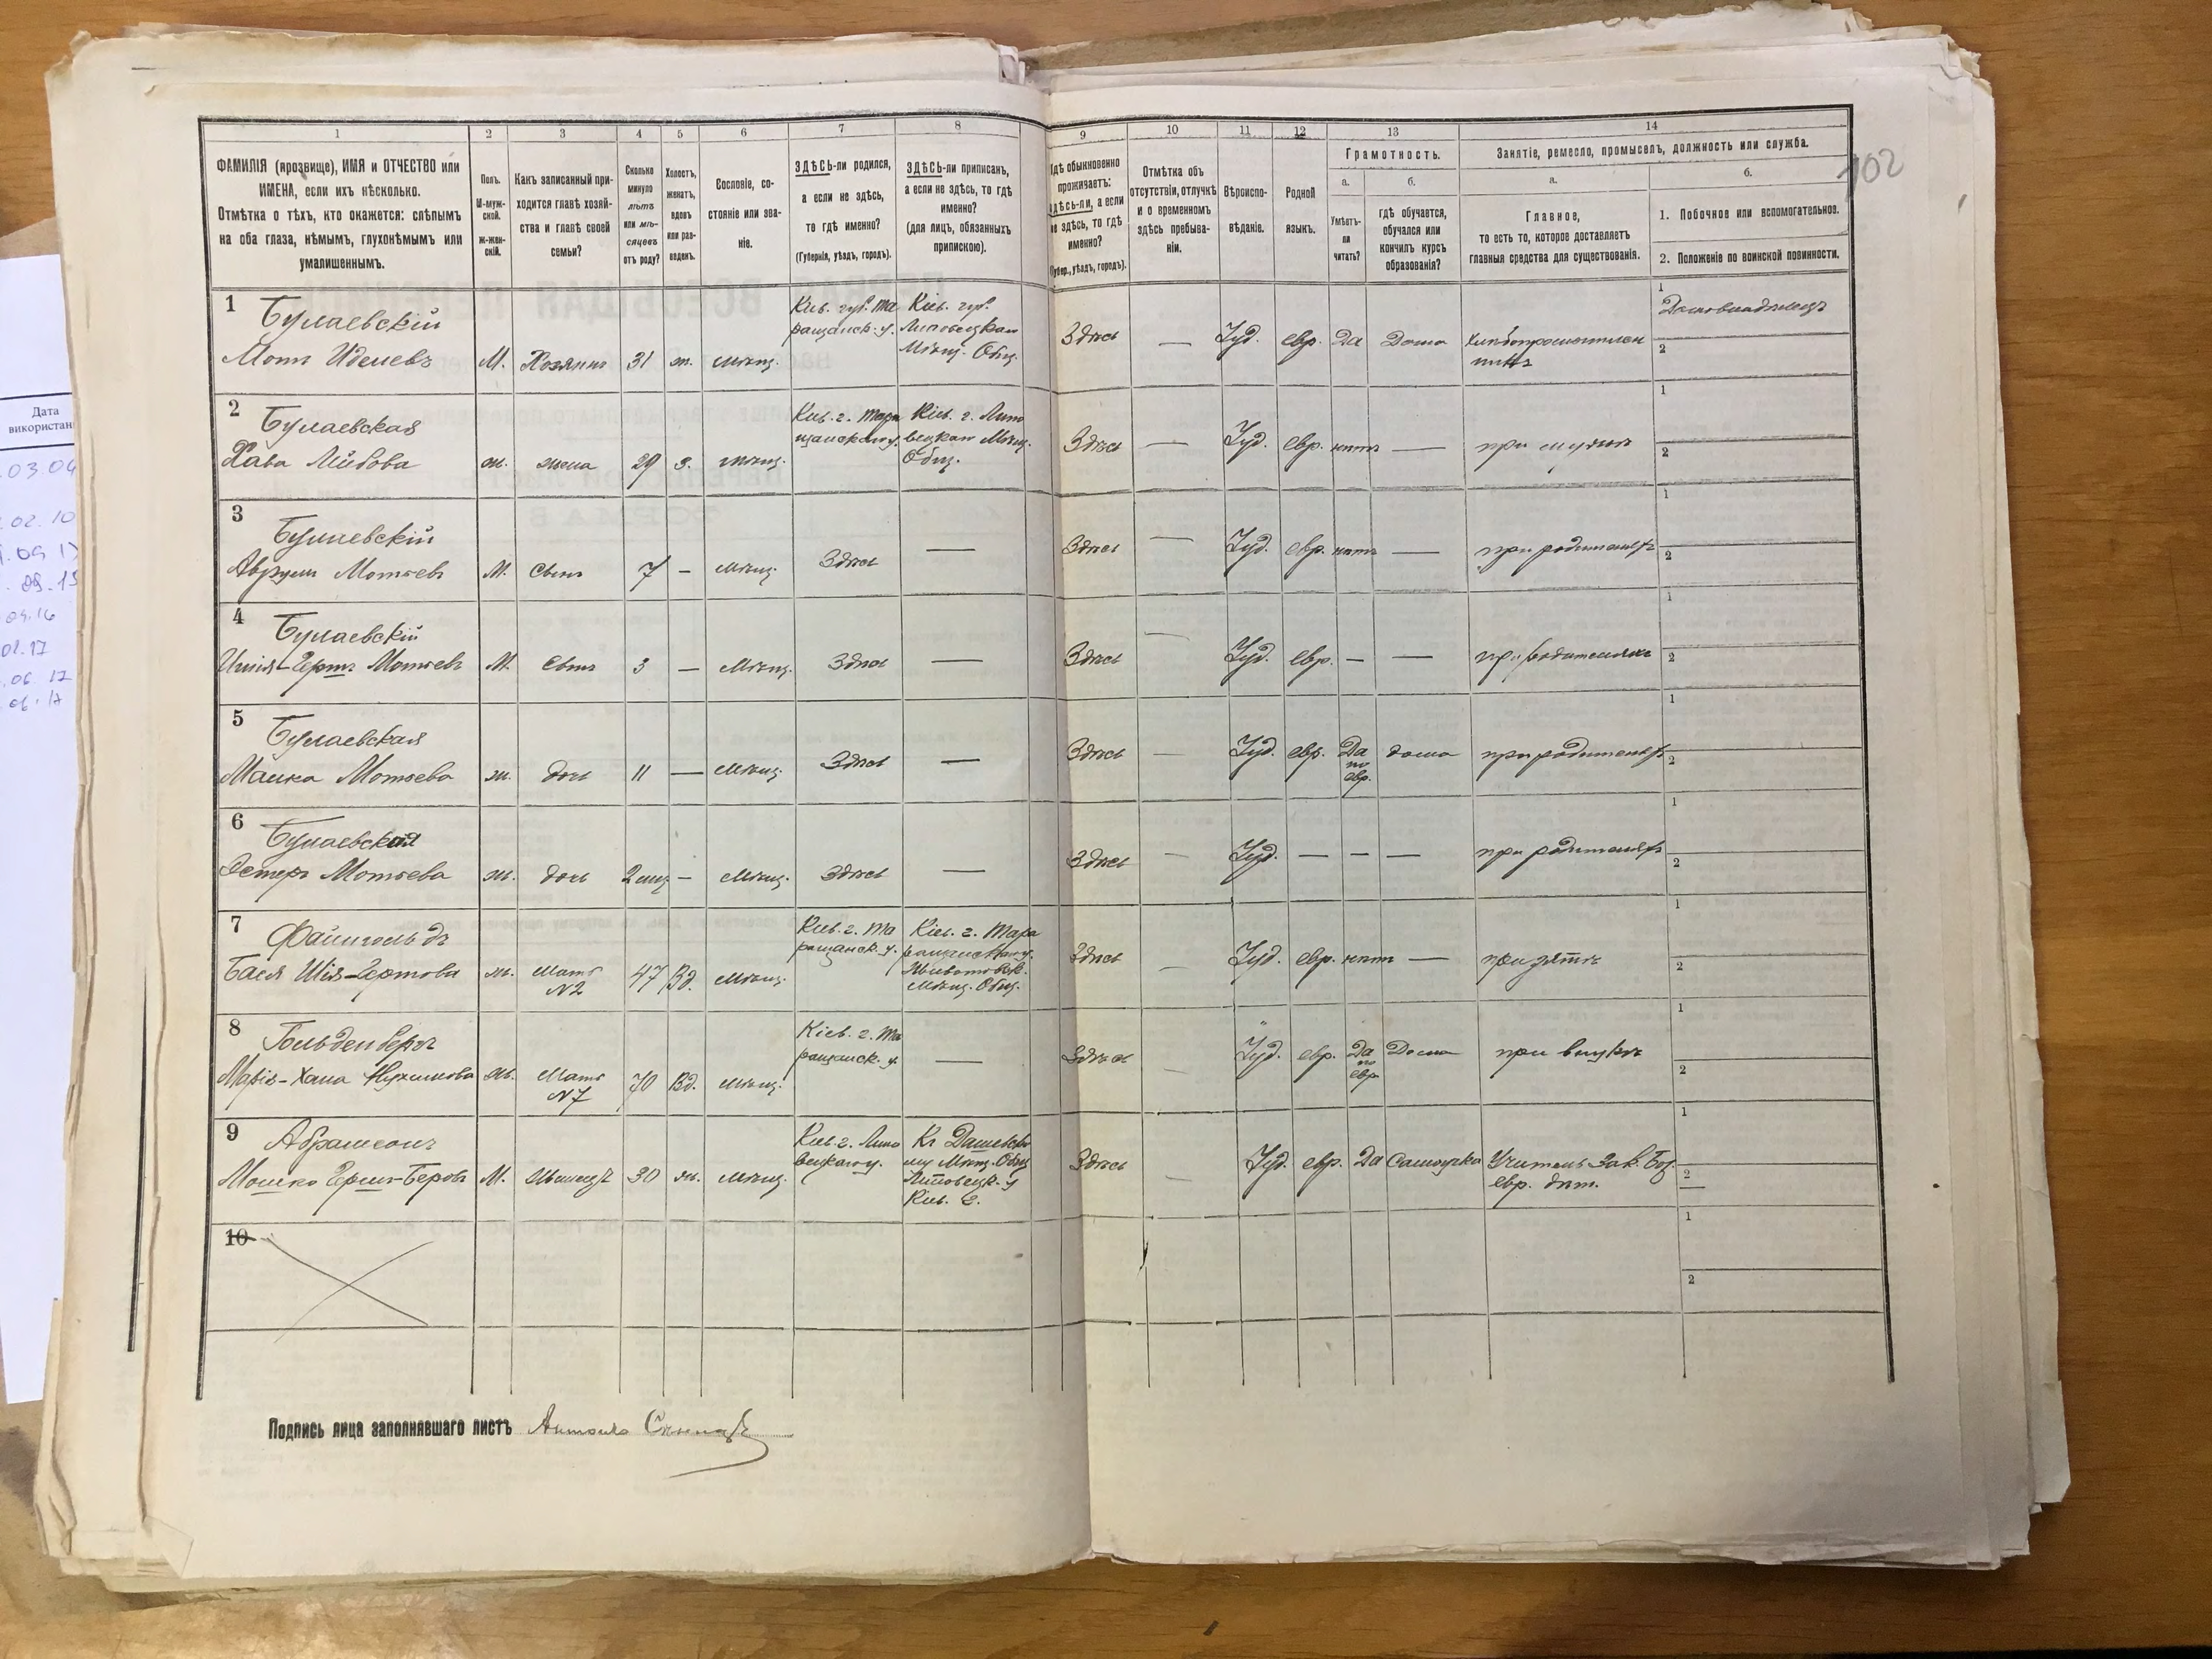 1 2 3 4 5 6 7 8 9 10 11 12 13 14
102
ФАМИЛІЯ (прозвище), ИМЯ и ОТЧЕСТВО или
ИМЕНА, если ихъ нѣсколько.
Отмѣтка о тѣхъ, кто окажется: слѣпымъ
на оба глаза, нѣмымъ, глухонѣмымъ или
умалишеннымъ.
Полъ.
М-муж-
ской.
Ж-жен-
скій.
Какъ записанный при-
ходится главѣ хозяй-
ства и главѣ своей
семьи?
Сколько
минуло
лѣтъ
или мѣ-
сяцевъ
отъ роду?
Холостъ,
женатъ,
вдовъ
или раз-
веденъ.
Сословіе, со-
стояніе или зва-
ніе.
ЗДѢСЬ-ли родился,
а если не здѣсь,
то гдѣ именно?
(Губернія, уѣздъ, городъ).
ЗДѢСЬ-ли приписанъ,
а если не здѣсь, то гдѣ
именно?
(для лицъ, обязанныхъ
припискою).
Гдѣ обыкновенно
проживаетъ:
здѣсь-ли, а если
не здѣсь, то гдѣ
именно?
(Губер., уѣздъ, городъ).
Отмѣтка объ
отсутствіи, отлучкѣ
и о временномъ
здѣсь пребыва-
ніи.
Вѣроиспо-
вѣданіе.
Родной
языкъ.
Грамотность.
а.
Умѣетъ-
ли
читать?
б.
гдѣ обучается,
обучался или
кончилъ курсъ
образованія?
Занятіе, ремесло, промыселъ, должность или служба.
а.
Главное,
то есть то, которое доставляетъ
главныя средства для существованія.
б.
1. Побочное или вспомогательное.
2. Положеніе по воинской повинности.
1 Булаевскій
Мотя Иделевъ М. Хозяинъ 31 ж. мѣщ.
Кіев. губ. Та
ращанск. у.
Кіев. губ.
Липовецкаго
Мѣщ. Общ.
Здѣсь — Іуд. евр. Да Дома
хлѣбопромышлен
никъ
1
Домовладѣлецъ
2
2 Булаевская
Хава Лейбова ж. жена 29 з. мѣщ.
Кіев. г. Тара
щанскаго у.
Кіев. г. Липо
вецкаго Мѣщ.
Общ.
Здѣсь — Іуд. евр. нѣтъ — при мужѣ
1
2
3 Булаевскій
Аврумъ Мотьевъ М. Сынъ 7 — мѣщ. Здѣсь —
Здѣсь — Іуд. евр. нѣтъ — при родителяхъ
1
2
4 Булаевскій
Шия-Гершъ Мотьевъ М. Сынъ 3 — Мѣщ. Здѣсь —
Здѣсь — Іуд. евр. — — при родителяхъ
1
2
5 Булаевская
Малка Мотьева ж. дочь 11 — мѣщ. Здѣсь —
Здѣсь — Іуд. евр. Да
по
евр.
дома при родителяхъ
1
2
6 Булаевская
Эстеръ Мотьева ж. дочь 2 мѣц — мѣщ. Здѣсь —
Здѣсь — Іуд. — — — при родителяхъ
1
2
7 Файнгольдъ
Бася Шія-Гертова ж. Мать
N2
47 Вд. мѣщ.
Кіев. г. Та
ращанск. у.
Кіев. г. Тара
ращанскаго у.
Животовск.
мѣщ. Общ.
Здѣсь — Іуд. евр. нѣтъ — при зятѣ
1
2
8 Гольденбергъ
Марія-Хана Нухимова ж. Мать
N7
70 Вд. мѣщ.
Кіев. г. Та
ращанск. у.
—
Здѣсь Іуд. евр. Да
по
евр.
Дома при внукѣ
1
2
9 Абрамсонъ
Мошко Герш-Беровъ М. Жилецъ 30 ж. мѣщ.
Кіев. г. Липо
вецкаго у.
Къ Дашевско
му Мѣщ. Общ
Липовецк. у
Кіев. г.
Здѣсь — Іуд. евр. Да Самоучка
Учитель Зак. Бож.
евр. дѣт.
1
2 —
10
1
2
Подпись лица заполнявшаго листъ
Дата
використан
.03.04
.02.10
.09.16
02.17
.06.17
.06.17